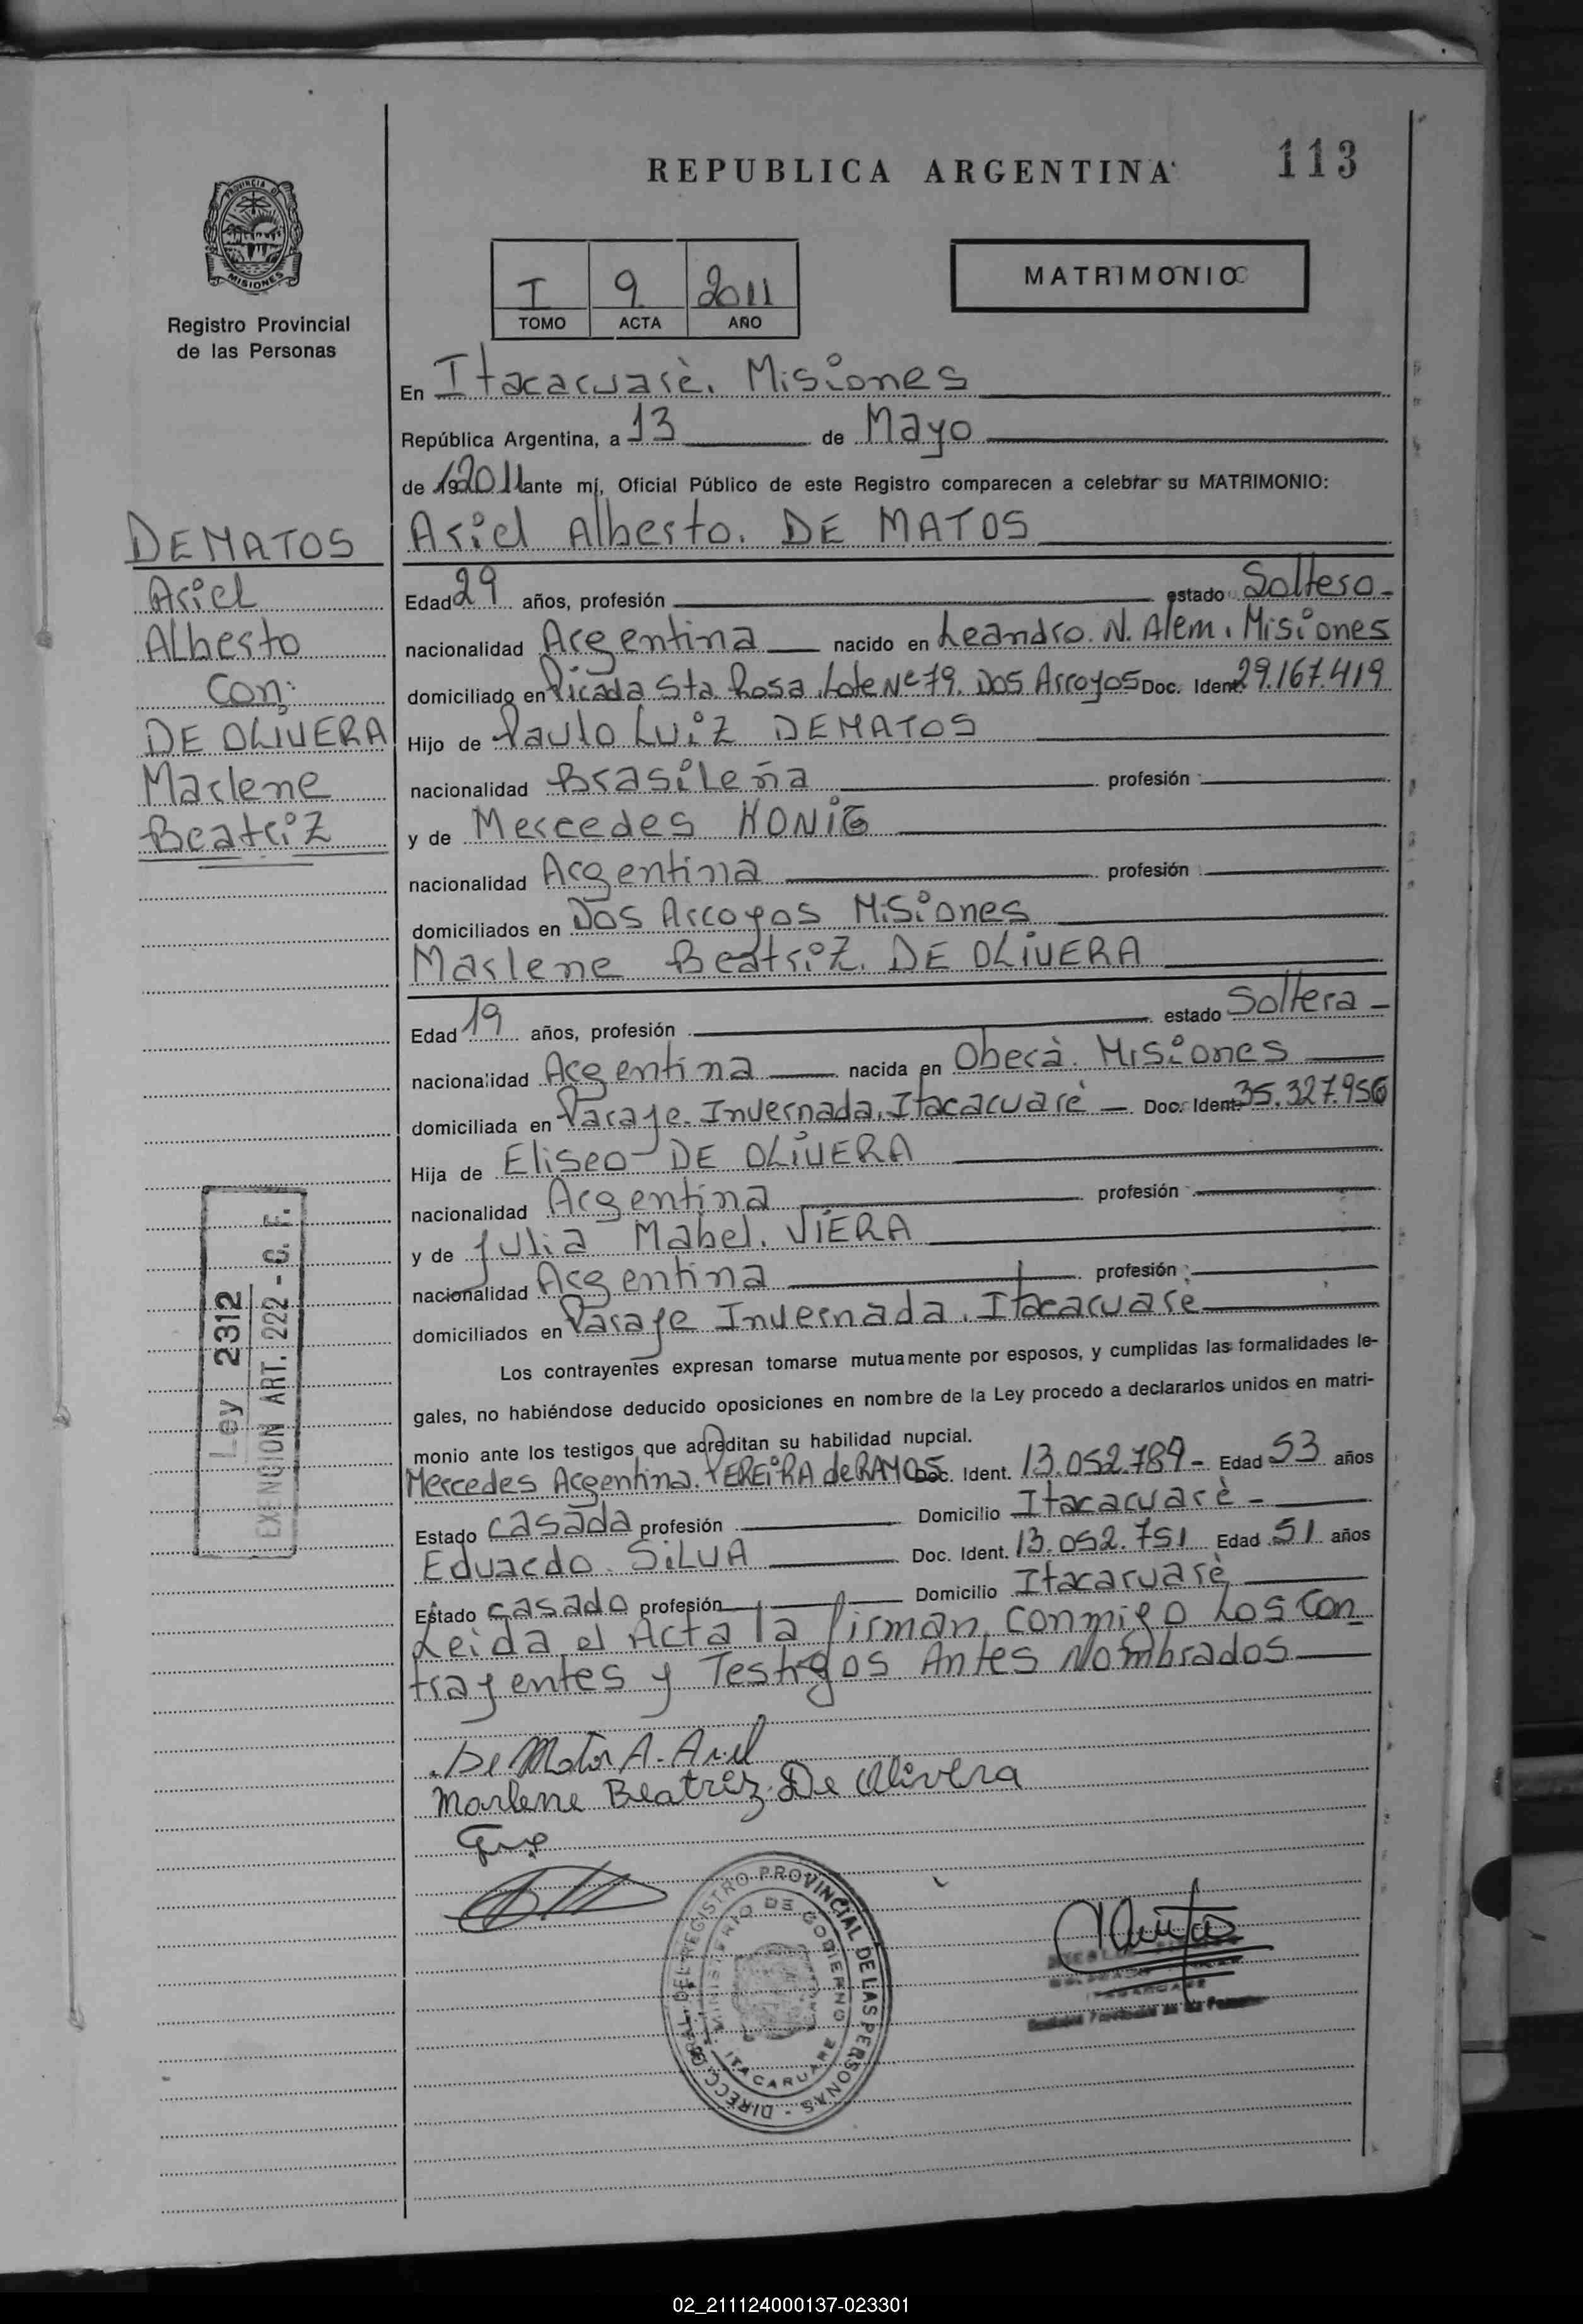 REPUBLICA ARGENTINA
113
PROVINCIA D
MISIONES
Registro Provincial
de las Personas
I 9 2011
TOMO ACTA AÑO
MATRIMONIO
En Itacacuarè. Misiones
República Argentina, a 13 de Mayo
de 192011 ante mí, Oficial Público de este Registro comparecen a celebrar su MATRIMONIO:
DEMATOS
Ariel
Alberto
con:
DE OLIVERA
Marlene
Beatriz
Ariel Alberto. DE MATOS
Edad 29 años, profesión estado Soltero -
nacionalidad Argentina nacido en Leandro. N. Alem. Misiones
domiciliado en Picada Sta Rosa. Lote Nº 79. Dos Arroyos Doc. Ident. 29.167.419
Hijo de Paulo Luiz DEMATOS
nacionalidad Brasileña profesión
y de Mercedes HONIG
nacionalidad Argentina profesión
domiciliados en Dos Arroyos Misiones
Marlene Beatriz. DE OLIVERA
Edad 19 años, profesión estado Soltera -
nacionalidad Argentina nacida en Oberà. Misiones
domiciliada en Paraje. Invernada. Itacacuarè - Doc. Ident. 35.327.956
Hija de Eliseo DE OLIVERA
nacionalidad Argentina profesión
y de Julia Mabel. VIERA
nacionalidad Argentina profesión
domiciliados en Paraje Invernada. Itacacuare
Los contrayentes expresan tomarse mutuamente por esposos, y cumplidas las formalidades le-
gales, no habiéndose deducido oposiciones en nombre de la Ley procedo a declararlos unidos en matri-
monio ante los testigos que acreditan su habilidad nupcial.
Mercedes Argentina. PEREIRA de RAMOS Doc. Ident. 13.052.789 - Edad 53 años
Estado casada profesión Domicilio Itacacuarè -
Eduardo. SILVA Doc. Ident. 13.052.751 Edad 51 años
Estado casado profesión Domicilio Itacaruarè
Leida el Acta la firman conmigo Los Con
trayentes y Testigos Antes Nombrados
Ley 2312
EXENCION ART. 222 - C. F.
De Matos A. Ariel
Marlene Beatriz De Olivera
DIRECC. GRAL. DEL REGISTRO PROVINCIAL DE LAS PERSONAS -
MINISTERIO DE GOBIERNO
ITACARUARE
02_211124000137-023301